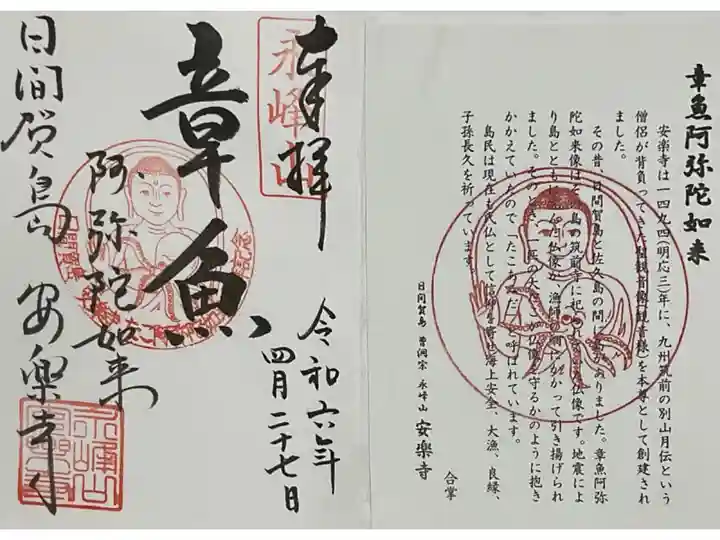 章魚阿弥陀如来
安楽寺は一四九四(明応三)年に、九州筑前の別山月伝という
僧侶が背負ってきた観音像(観音様)を本尊として創建され
ました。
その昔、日間賀島と佐久島の間に島がありました。章魚阿弥
陀如来像はその島の筑前寺に祀られていた仏像です。地震によ
り島とともに沈んだ仏像が、漁師の網にかかって引き揚げられ
ました。そのとき、一匹の大だこが仏像を守るかのように抱き
かかえていたので「たこあみだ」と呼ばれています。
島民は現在も氏仏として信仰を寄せ海上安全、大漁、良縁、
子孫長久を祈っています。
日間賀島 曹洞宗 永峰山 安楽寺
合掌
奉拝
永峰山
令和六年
四月二十七日
章魚
阿弥陀如来
日間賀島 安楽寺
永峰山
安楽寺